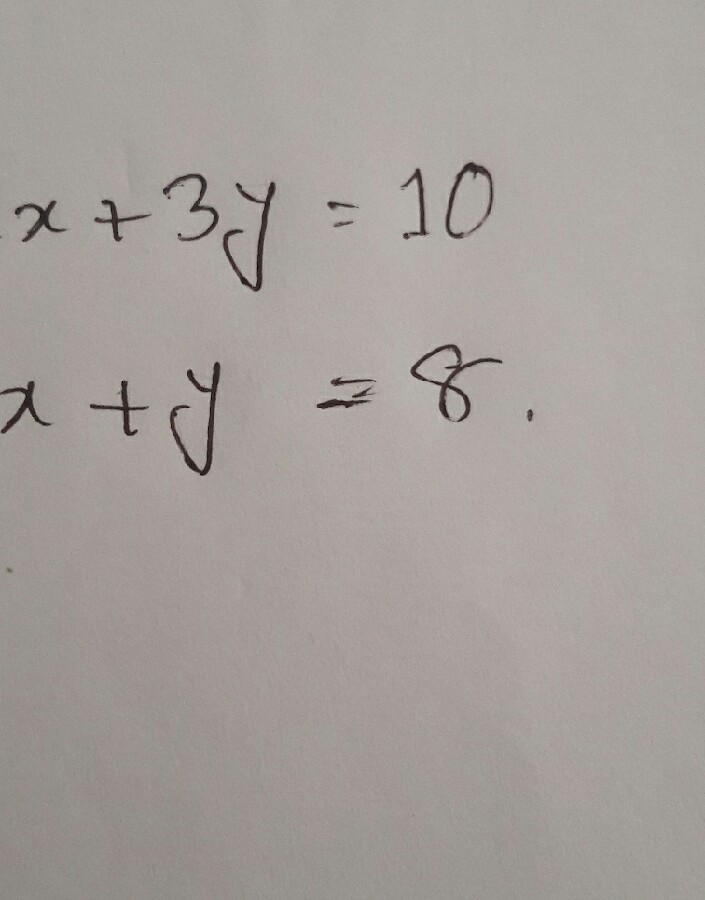 x + 3y = 10
x + y = 8.